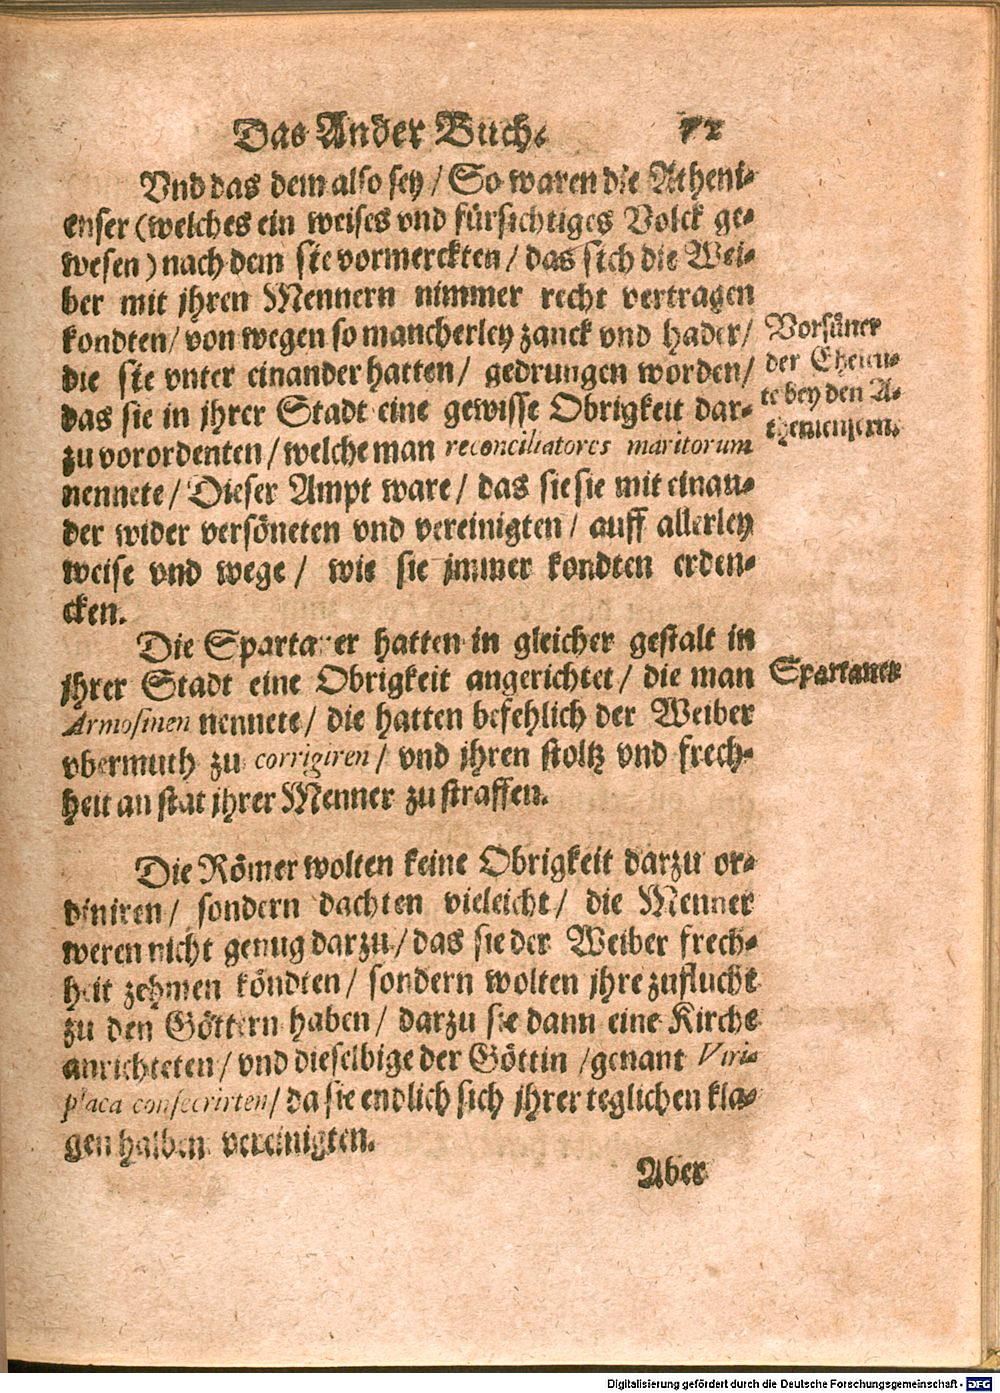 Das Ander Buch.
72
Vnd das dem also sey / So waren die Atheni-
enser (welches ein weises vnd fürsichtiges Volck ge-
wesen) nach dem sie vormerckten / das sich die Wei-
ber mit jhren Mennern nimmer recht vertragen
kondten / von wegen so mancherley zanck vnd hader /
die sie vnter einander hatten / gedrungen worden /
das sie in jhrer Stadt eine gewisse Obrigkeit dar-
zu vorordenten / welche man reconciliatores maritorum
nennete / Dieser Ampt ware / das sie sie mit einan-
der wider versöneten vnd vereinigten / auff allerley
weise vnd wege / wie sie jmmer kondten erden-
cken.
Vorsüner
der Eheleu-
te bey den A-
theniensern.
Die Spartaner hatten in gleicher gestalt in
jhrer Stadt eine Obrigkeit angerichtet / die man
Armosinen nennete / die hatten befehlich der Weiber
vbermuth zu corrigiren / vnd jhren stoltz vnd frech-
heit an stat jhrer Menner zu straffen.
Spartaner
Die Römer wolten keine Obrigkeit darzu or-
diniren / sondern dachten vieleicht / die Menner
weren nicht genug darzu / das sie der Weiber frech-
heit zehmen köndten / sondern wolten jhre zuflucht
zu den Göttern haben / darzu sie dann eine Kirche
anrichteten / vnd dieselbige der Göttin / genant Viri-
placa consecrirten / da sie endlich sich jhrer teglichen kla-
gen halben vereinigten.
Aber
Digitalisierung gefördert durch die Deutsche Forschungsgemeinschaft - DFG